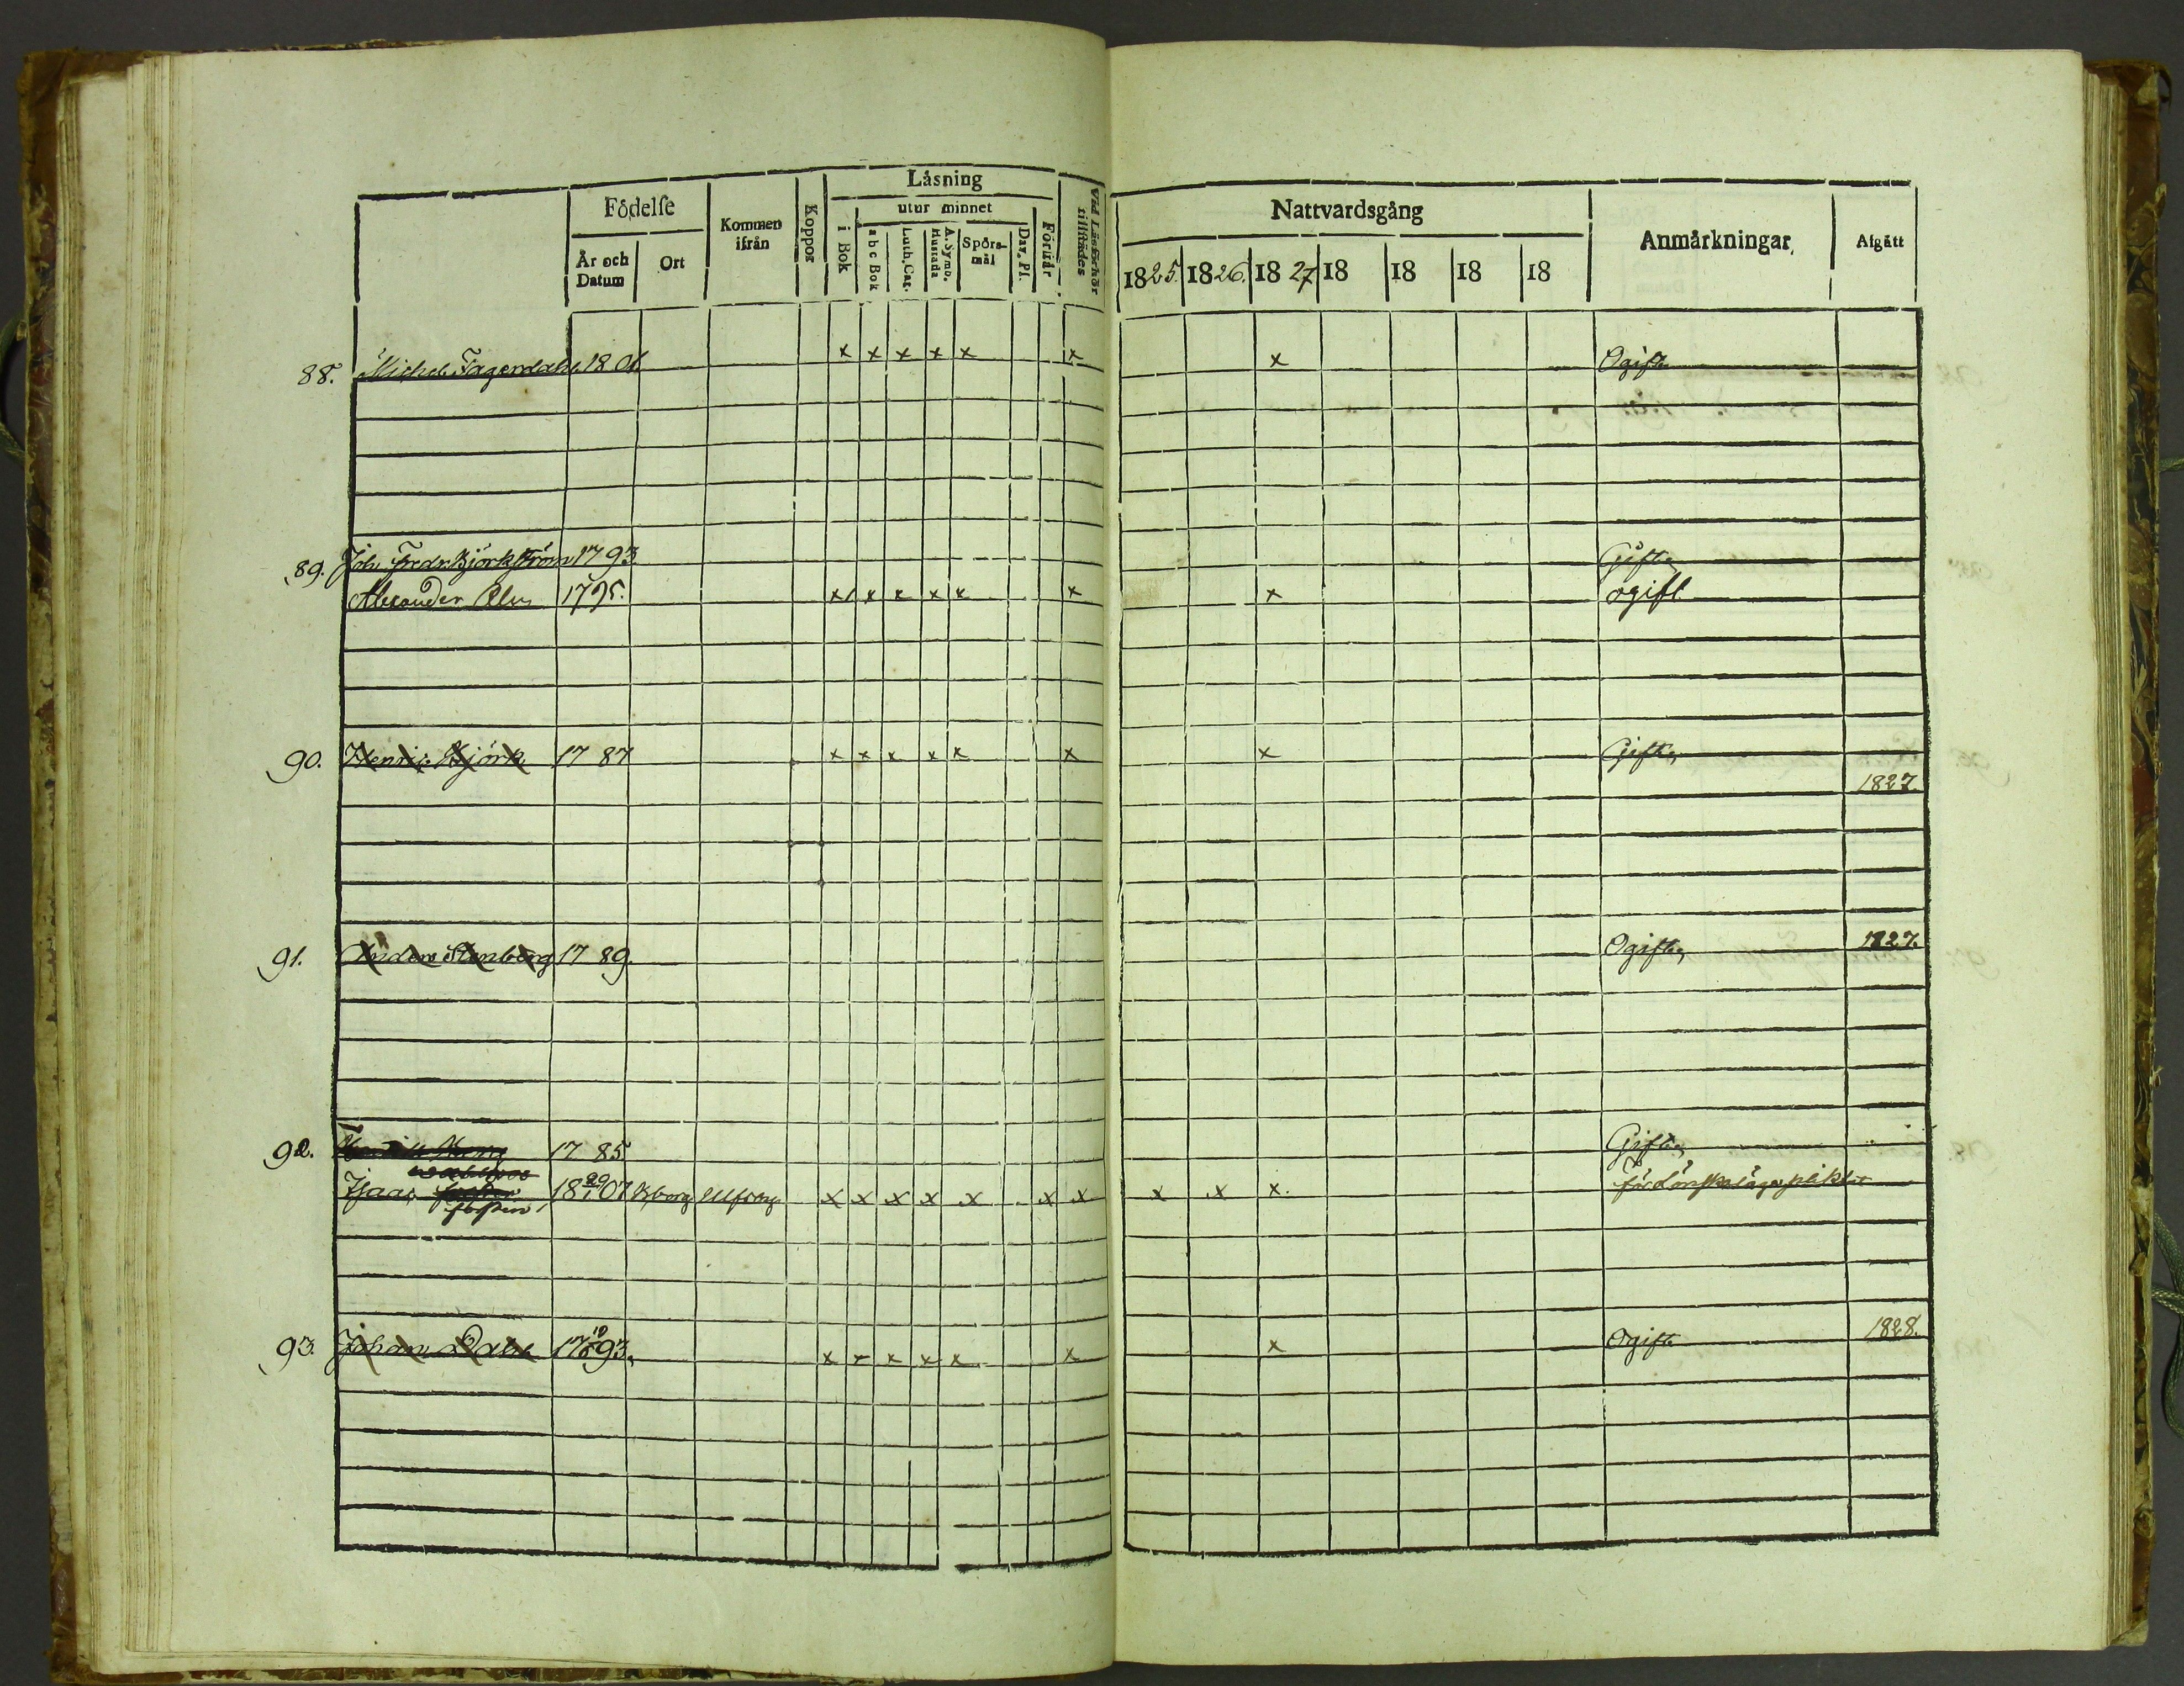 Födelse
År och Datum
Ort
Kommen ifrån
Koppor
Läsning
i Bok
utur minnet
a b c Bok
Luth. Cat.
A. Symb. Hustafla
Spörsmål
Dav. Ps.
Förstår
Vid Läsförhör tillstädes
Nattvardsgång
1825. 1826. 1827 18 18 18 18
Anmärkningar
Afgått
88. Michel Fagerdahl 1801 x x x x x x x Ogift
89. Joh. Fredr. Björkström 1793 Gift
Alexander 1795. x x x x x x x ogift
90. Henric Björk 1787 x x x x x x x Gift
1827.
91. Anders Stenberg 1789. Ogift 1827.
92. 1785 Gift
Isaac 1807 Ulfsby x x x x x x x x x x. för Lönskaläge plikt
93. Johan 1793. x x x x x x x Ogift 1828.